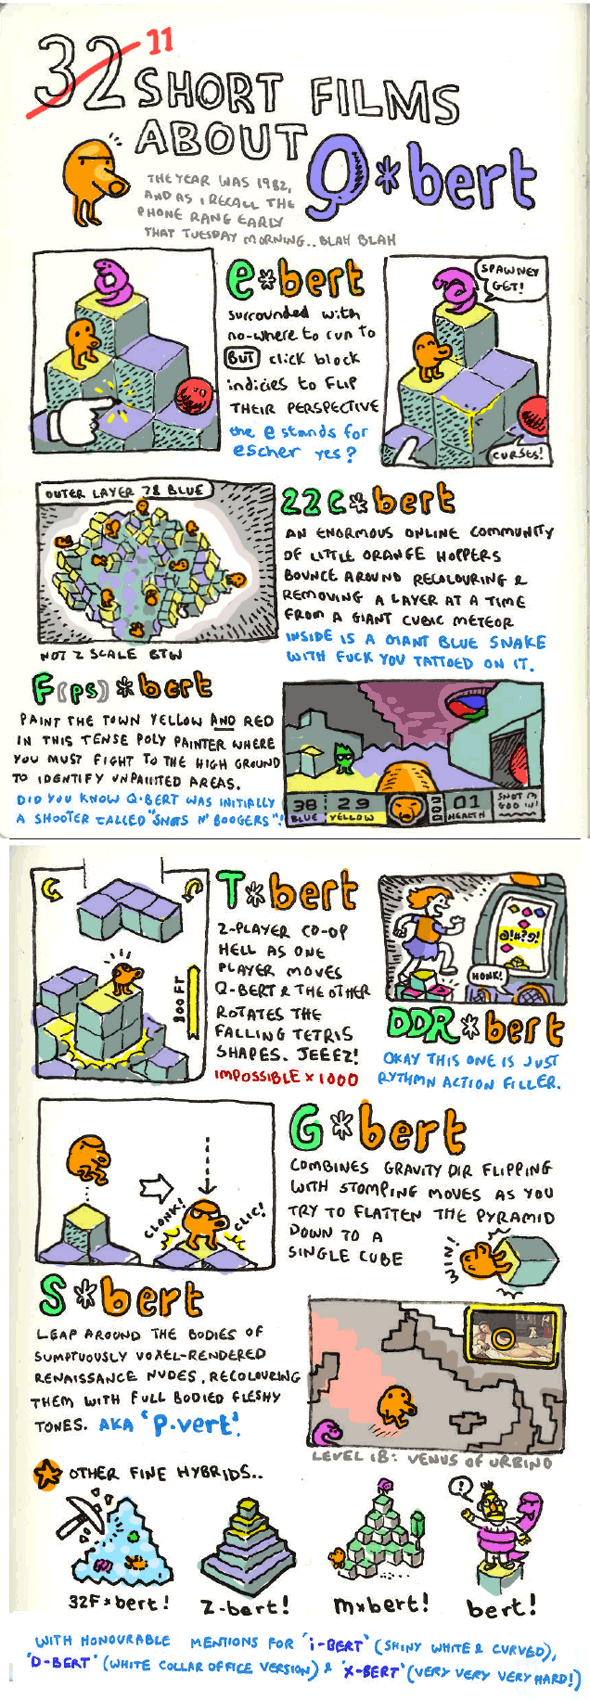 32 11
SHORT FILMS
ABOUT Q*bert
THE YEAR WAS 1982,
AND AS I RECALL THE
PHONE RANG EARLY
THAT TUESDAY MORNING.. BLAH BLAH
e*bert
surrounded with
no-where to run to
BUT click block
indicies to FLIP
THEIR PERSPECTIVE
the e stands for
escher yes?
SPAWNEY
GET!
CURSES!
OUTER LAYER 78 BLUE
NOT 2 SCALE BTW
22c*bert
AN ENORMOUS ONLINE COMMUNITY
OF LITTLE ORANGE HOPPERS
BOUNCE AROUND RECOLOURING &
REMOVING A LAYER AT A TIME
FROM A GIANT CUBIC METEOR
INSIDE IS A GIANT BLUE SNAKE
WITH FUCK YOU TATTOED ON IT.
F(PS)*bert
PAINT THE TOWN YELLOW AND RED
IN THIS TENSE POLY PAINTER WHERE
YOU MUST FIGHT TO THE HIGH GROUND
TO IDENTIFY UNPAINTED AREAS.
DID YOU KNOW Q*BERT WAS INITIALLY
A SHOOTER CALLED "SNOTS N' BOOGERS"?
38 29 01
BLUE YELLOW HEALTH
T*bert
2-PLAYER CO-OP
HELL AS ONE
PLAYER MOVES
Q-BERT & THE OTHER
ROTATES THE
FALLING TETRIS
SHAPES. JEEEZ!
IMPOSSIBLE x 1000
200 FT
@!#?@!
HONK!
DDR*bert
OKAY THIS ONE IS JUST
RYTHMN ACTION FILLER.
CLONK!
CLIC!
G*bert
COMBINES GRAVITY DIR FLIPPING
WITH STOMPING MOVES AS YOU
TRY TO FLATTEN THE PYRAMID
DOWN TO A
SINGLE CUBE
WIN!
S*bert
LEAP AROUND THE BODIES OF
SUMPTUOUSLY VOXEL-RENDERED
RENAISSANCE NUDES, RECOLOURING
THEM WITH FULL BODIED FLESHY
TONES. AKA 'P.vert'.
LEVEL 1B: VENUS OF URBINO
OTHER FINE HYBRIDS..
!?
32F*bert!
Z-bert!
m*bert!
bert!
WITH HONOURABLE MENTIONS FOR 'i-BERT' (SHINY WHITE & CURVED),
'D-BERT' (WHITE COLLAR OFFICE VERSION) & 'X-BERT' (VERY VERY VERY HARD!)